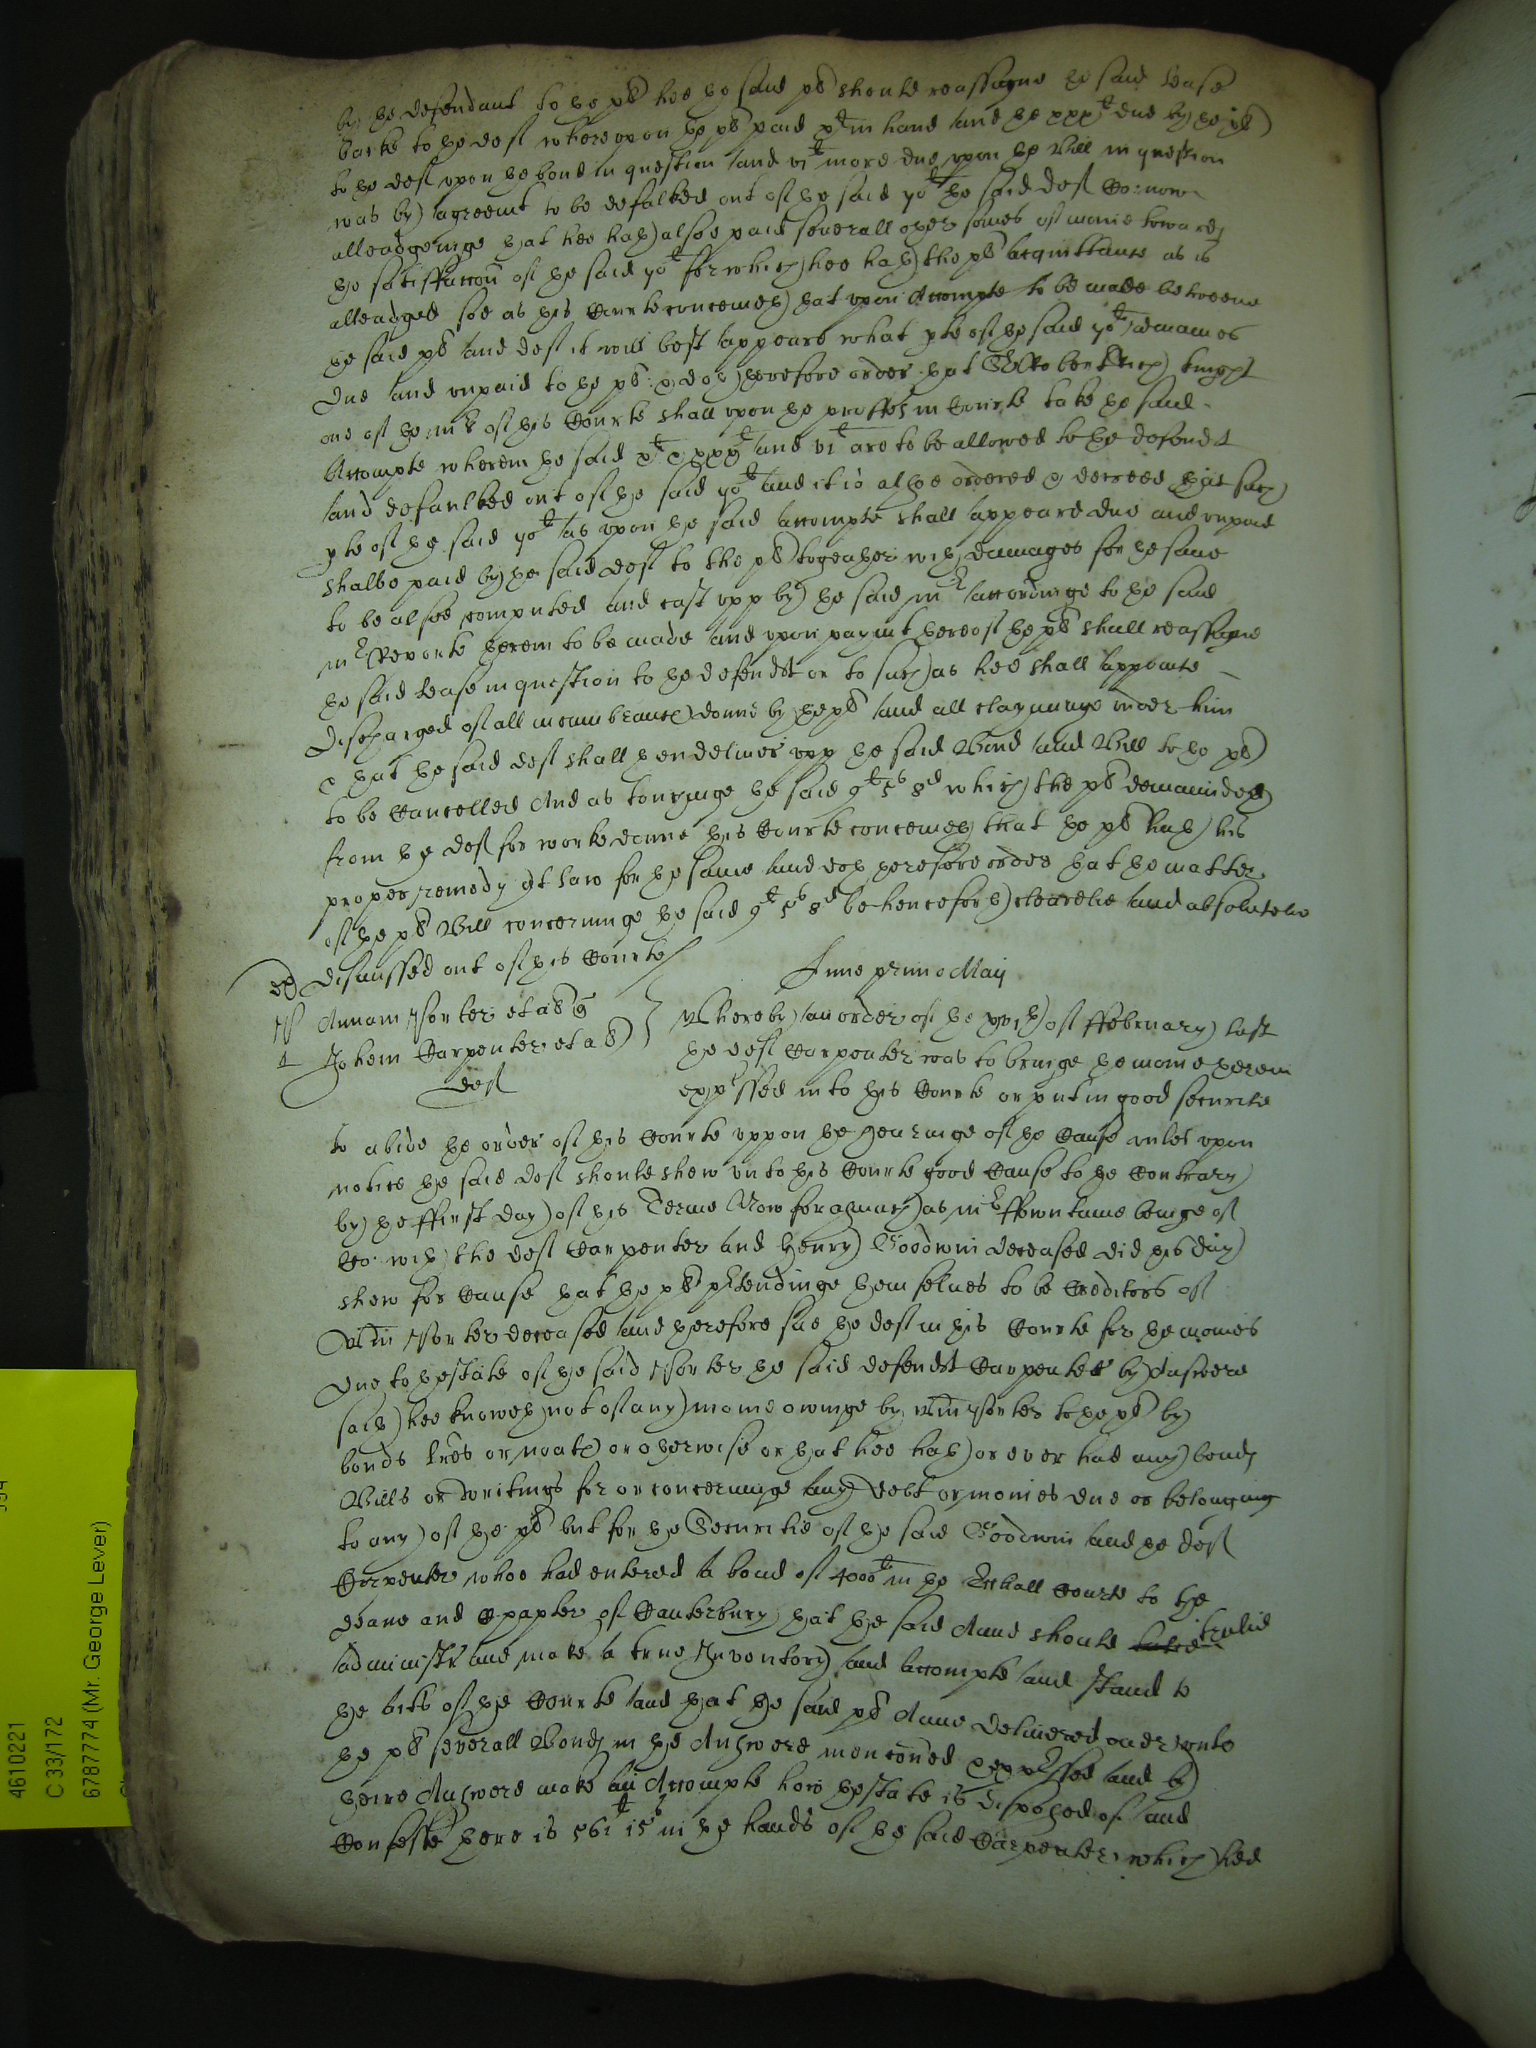 by the defendant to the pl hee the said pl should reassigne the said lease
backe to the deft whereupon the pl paid xl in hand and the xxxl due by the pl
to the deft upon the bond in question and vil more due upon the Bill in question
was by agreemt to be defalked out of the said 70l the said deft Co: now
alleadgeinge that hee hath alsoe paid severall other somes of monie towards
the satisfaccon of the said 70l for which hee hath the pl acquittance as is
alleadged soe as this Courte conceiveth that upon Accompte to be made betweene
the said pl and deft it will best appeare what pte of the said 70l remaines
due and unpaid to the pl: & doth therefore order that Sr Robert Rich knight
one of the mrs of this Courte shall upon the proffes in Courte take the said
Accompte wherein the said xl & xxxl and vil are to be allowed to the defendt
and defaulked out of the said 70l and it is alsoe ordered & decreed that such
pte of the said 70l as upon the said accompte shall appeare due and unpaid
shalbe paid by the said deft to the pl together wth damages for the same
to be alsoe computed and cast upp by the said mr accordinge to the said
mr Reporte therein to be made and upon paymt thereof the pl shall reassigne
the said lease in question to the defendt or to such as hee shall appointe
discharged of all incumbrances donne by the pl and all clayminge under him
& that the said deft shall then deliver upp the said Bond and Bill to the pl
to be Cancelled And as touchinge the said 9l 5s 8d which the pl demaundeth
from the deft for worke donne this Courte conceiveth that the pl hath his
proper remedy att law for the same and doth therefore order that the matter
of the pl Bill concerninge the said 9l 5s 8d be henceforth clearelie and absolutelie
dismissed out of this Courte
Lune primo Maij
Annam Porter et al Q
Johem Carpenter et al
deft
Whereby an order of the of ffebruary last
the deft Carpenter was to bringe the monie therein
expressed into this Courte or put in good securitie
to abide the order of this Courte uppon the hearinge of the Cause unles upon
notice the said deft should shew unto this Courte good Cause to the Contrary
by the ffirst day of this Terme Now forasmuch as mr ffowntaine beinge of
Co: wth the deft Carpenter and Henry Goodwin deceased did this day
shew for Cause that the pl ptendinge themselves to be Creditors of
Wm Porter deceased and therefore sue the deft in this Courte for the monies
due to thestate of the said Porter the said defendt Carpenter by Answere
saith hee knoweth not of any monie owinge by Wm Porter to the pl by
bonds lres or noates or otherwise or that hee hath or ever had any bonds
Bills or writings for or concerninge any debt or monies due or belonging
to any of the pl but for the Securitie of the said Goodwin and the deft
Carpenter whoe had entered a bond of 4000l in the Eccliall Courte to the
deane and Chapter of Canterbury that the said Anne should trulie
administr and make a true Inventory and accompte and stand to
the acts of the Courte and that the said pl Anne delivered over unto
the pl severall Bonds in the Answere menconed & expressed and by
theire Answere make an Accompte how thestate is disposed of and
Confesse there is 561l 15s in the hands of the said Carpenter which hee
4610221
C 33/172
6787774 (Mr. George Lever)